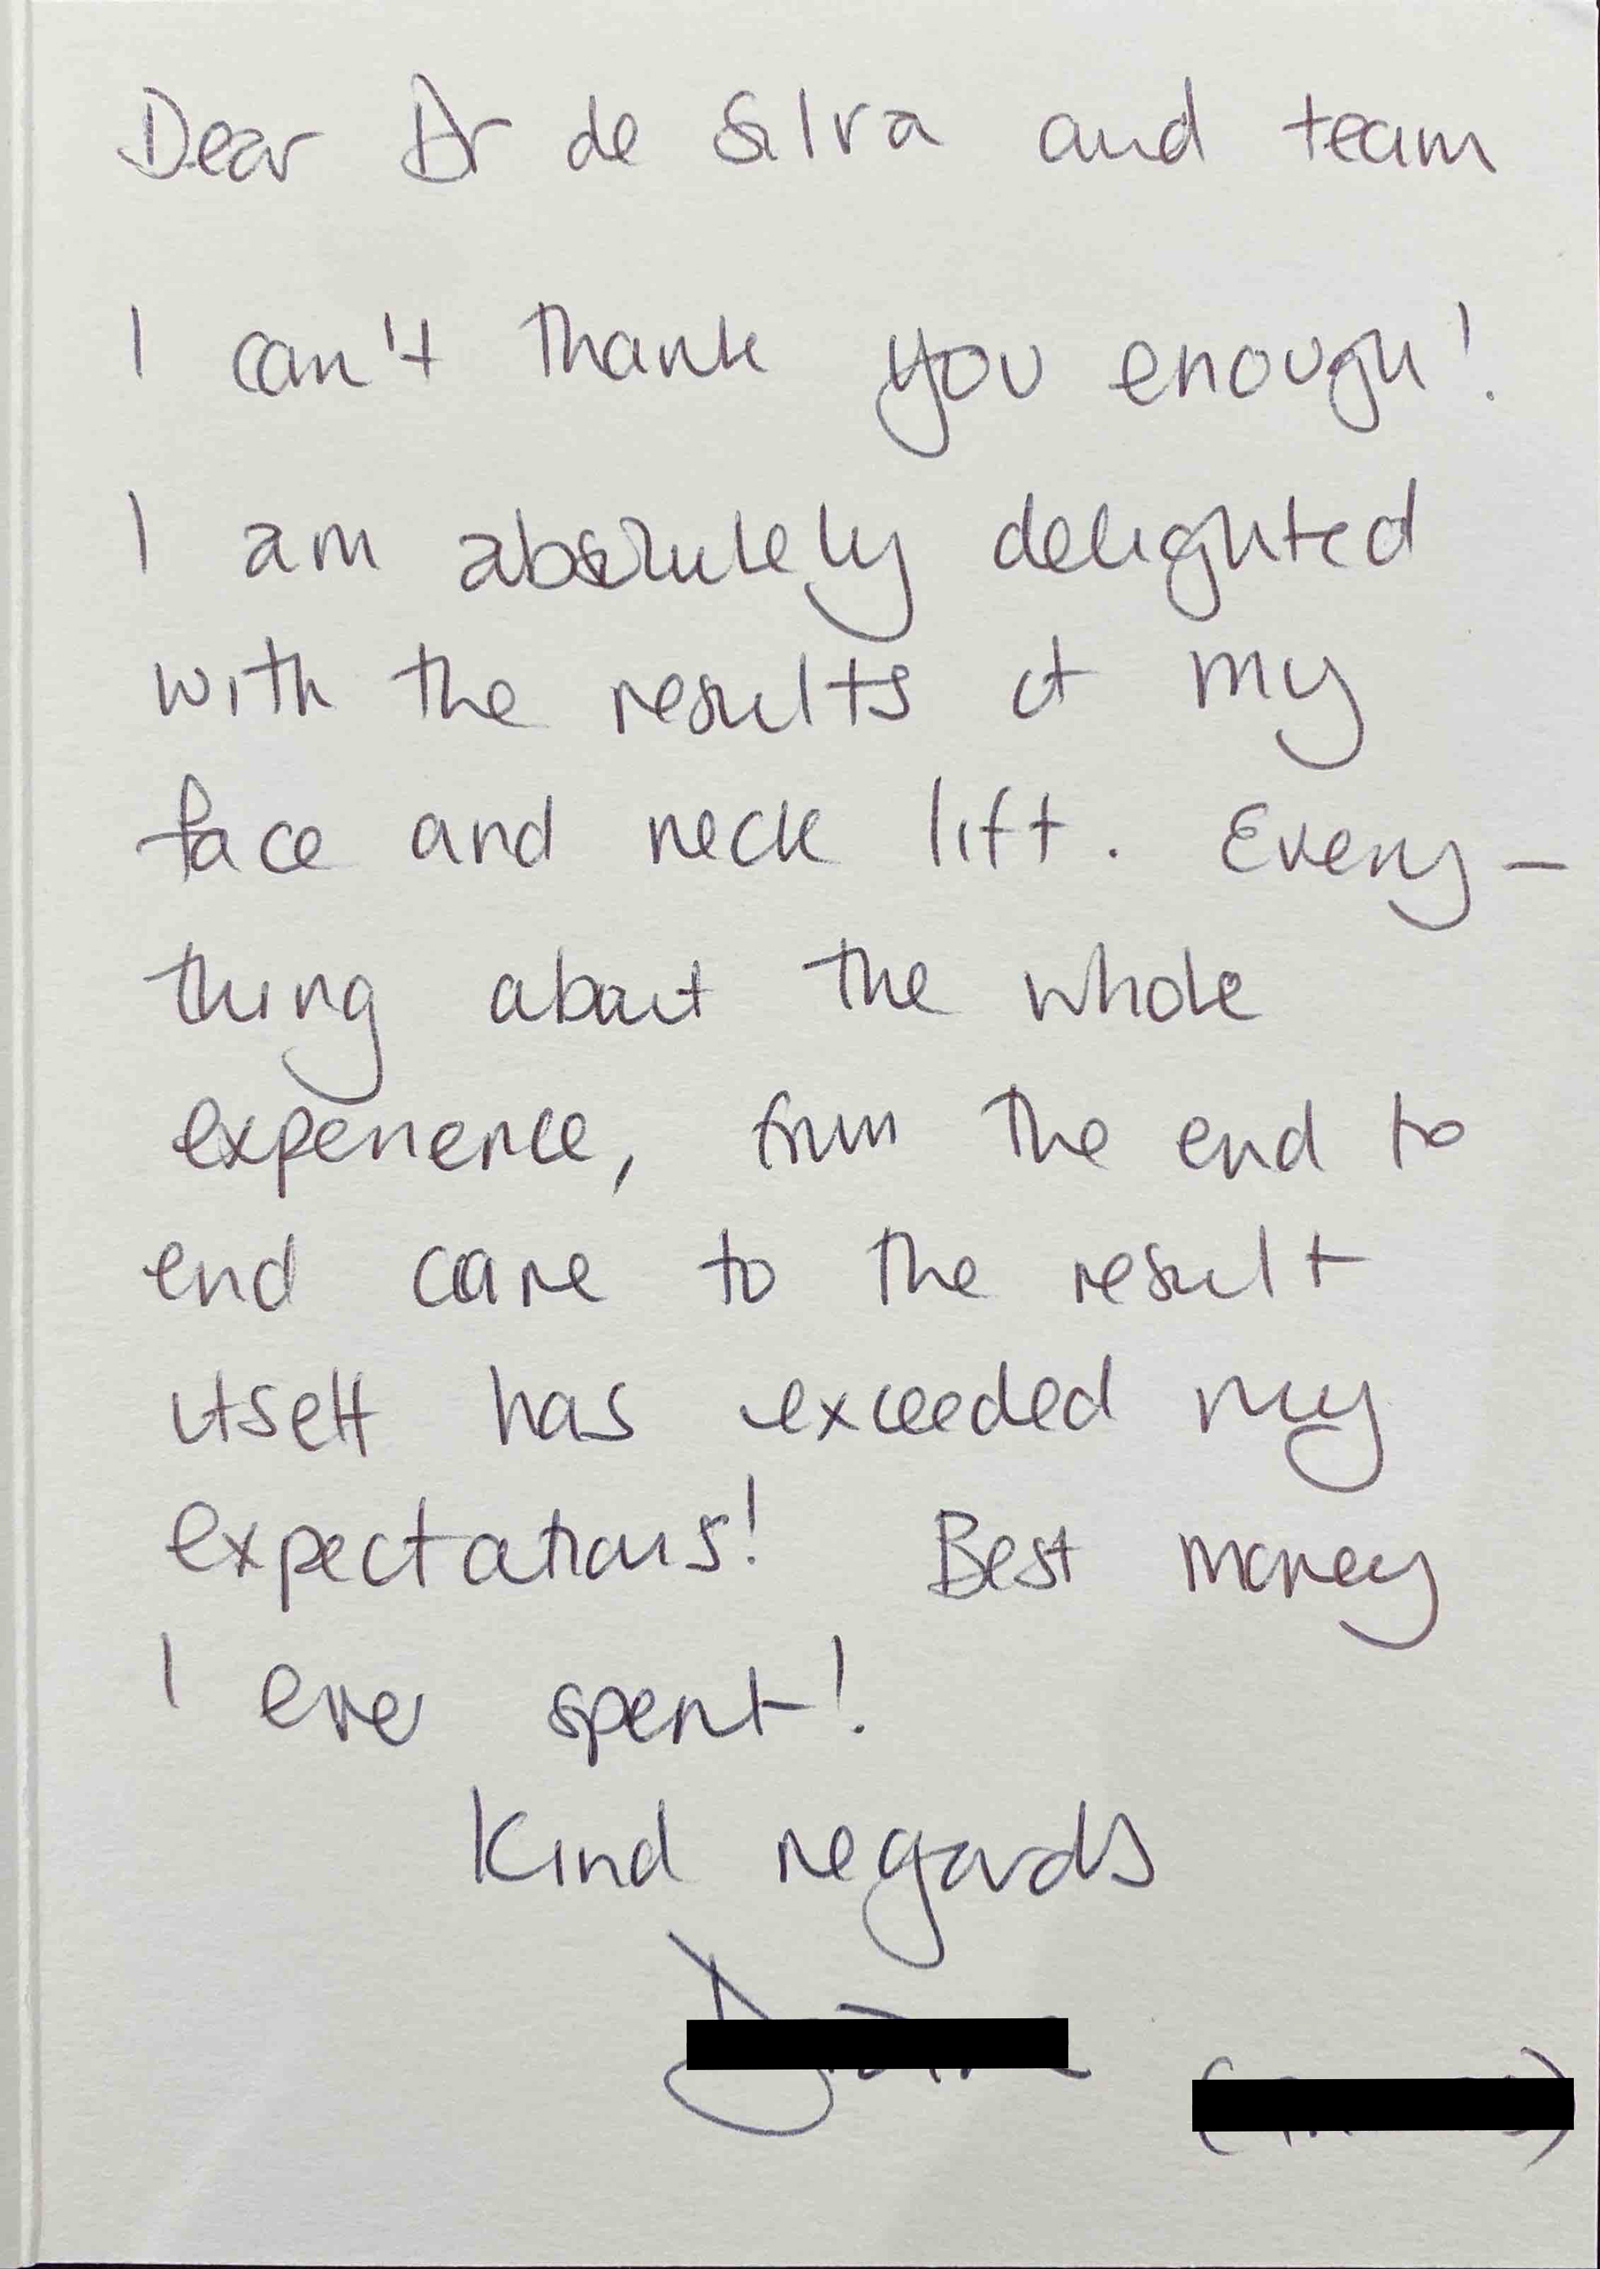 Dear Dr de Silva and team
I can't thank you enough!
I am absolutely delighted
with the results of my
face and neck lift. Every-
thing about the whole
experience, from the end to
end care to the result
itself has exceeded my
expectations! Best money
I ever spent!
Kind regards